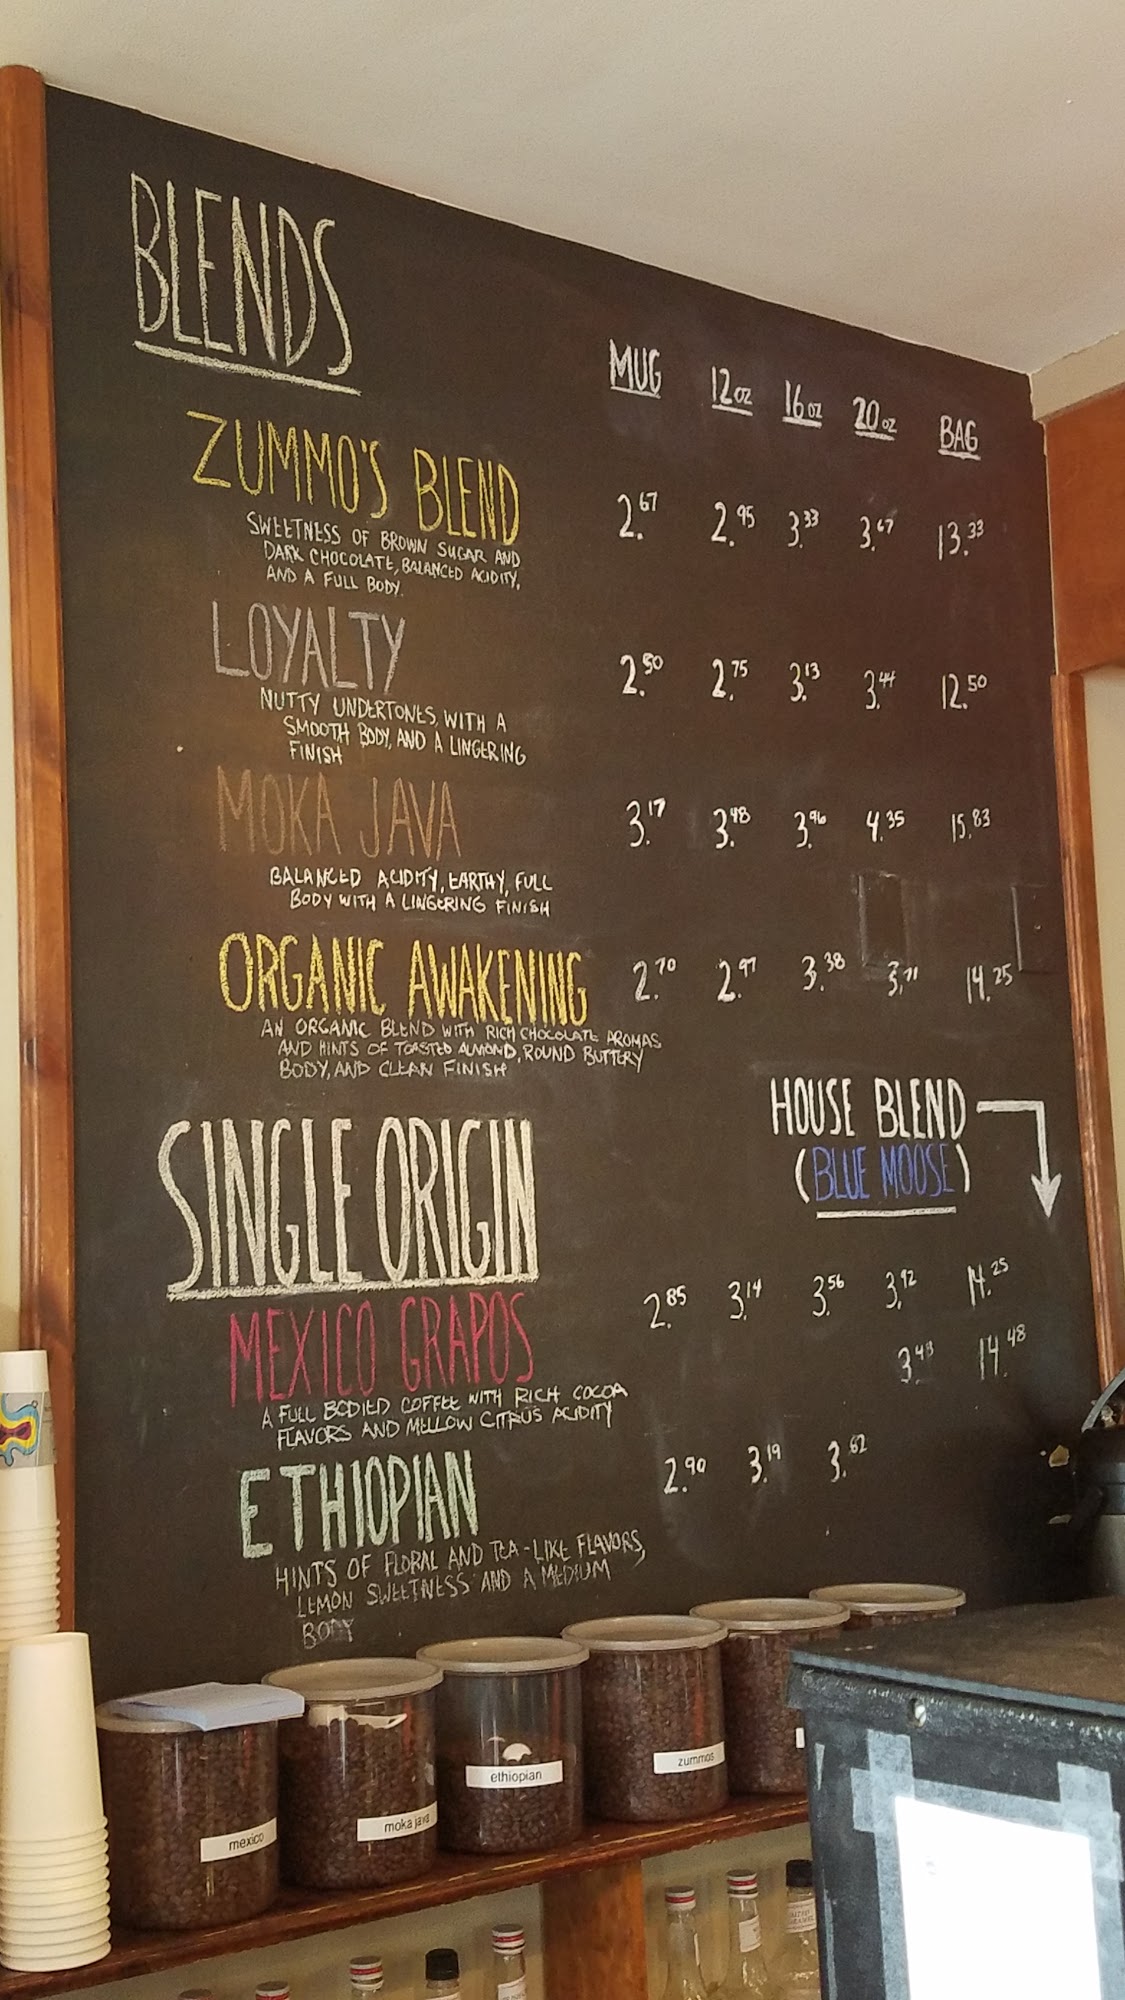 BLENDS
MUG 12oz 16oz 20oz BAG
ZUMMO'S BLEND 2.67 2.95 3.33 3.67 13.33
SWEETNESS OF BROWN SUGAR AND
DARK CHOCOLATE, BALANCED ACIDITY,
AND A FULL BODY.
LOYALTY 2.50 2.75 3.13 3.44 12.50
NUTTY UNDERTONES, WITH A
SMOOTH BODY, AND A LINGERING
FINISH
MOKA JAVA 3.17 3.48 3.96 4.35 15.83
BALANCED ACIDITY, EARTHY, FULL
BODY WITH A LINGERING FINISH
ORGANIC AWAKENING 2.70 2.97 3.38 3.71 14.25
AN ORGANIC BLEND WITH RICH CHOCOLATE AROMAS
AND HINTS OF TOASTED ALMOND, ROUND BUTTERY
BODY, AND CLEAN FINISH
HOUSE BLEND
(BLUE MOOSE)
SINGLE ORIGIN
MEXICO GRAPOS 2.85 3.14 3.56 3.92 14.25
3.43 14.48
A FULL BODIED COFFEE WITH RICH COCOA
FLAVORS AND MELLOW CITRUS ACIDITY
ETHIOPIAN 2.90 3.19 3.62
HINTS OF FLORAL AND TEA-LIKE FLAVORS,
LEMON SWEETNESS AND A MEDIUM
BODY
mexico
moka java
ethiopian
zummos